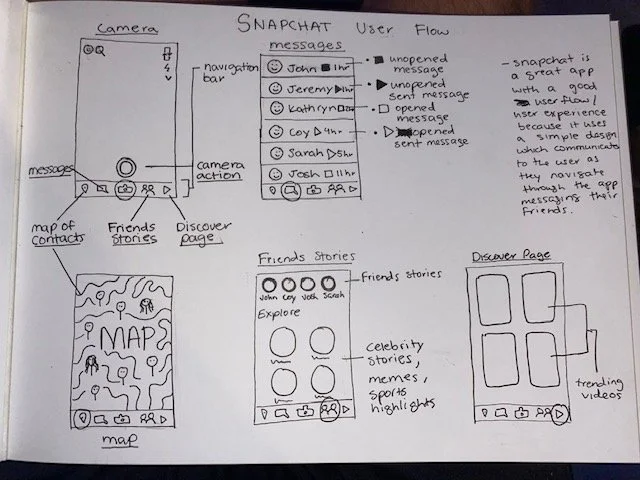 SNAPCHAT User Flow
Camera
navigation
bar
messages
camera
action
map of
contacts
Friends
Stories
Discover
page
messages
John 1hr
Jeremy 1hr
Kathryn
Coy 4hr
Sarah 5hr
Josh 11hr
unopened
message
unopened
sent message
opened
message
opened
sent message
- snapchat is
a great app
with a good
user flow/
user experience
because it uses
a simple design
which communicates
to the user as
they navigate
through the app
messaging their
friends.
MAPS
map
Friends Stories
John Coy Josh Sarah
Friends stories
Explore
celebrity
stories,
memes,
sports
highlights
Discover Page
trending
videos